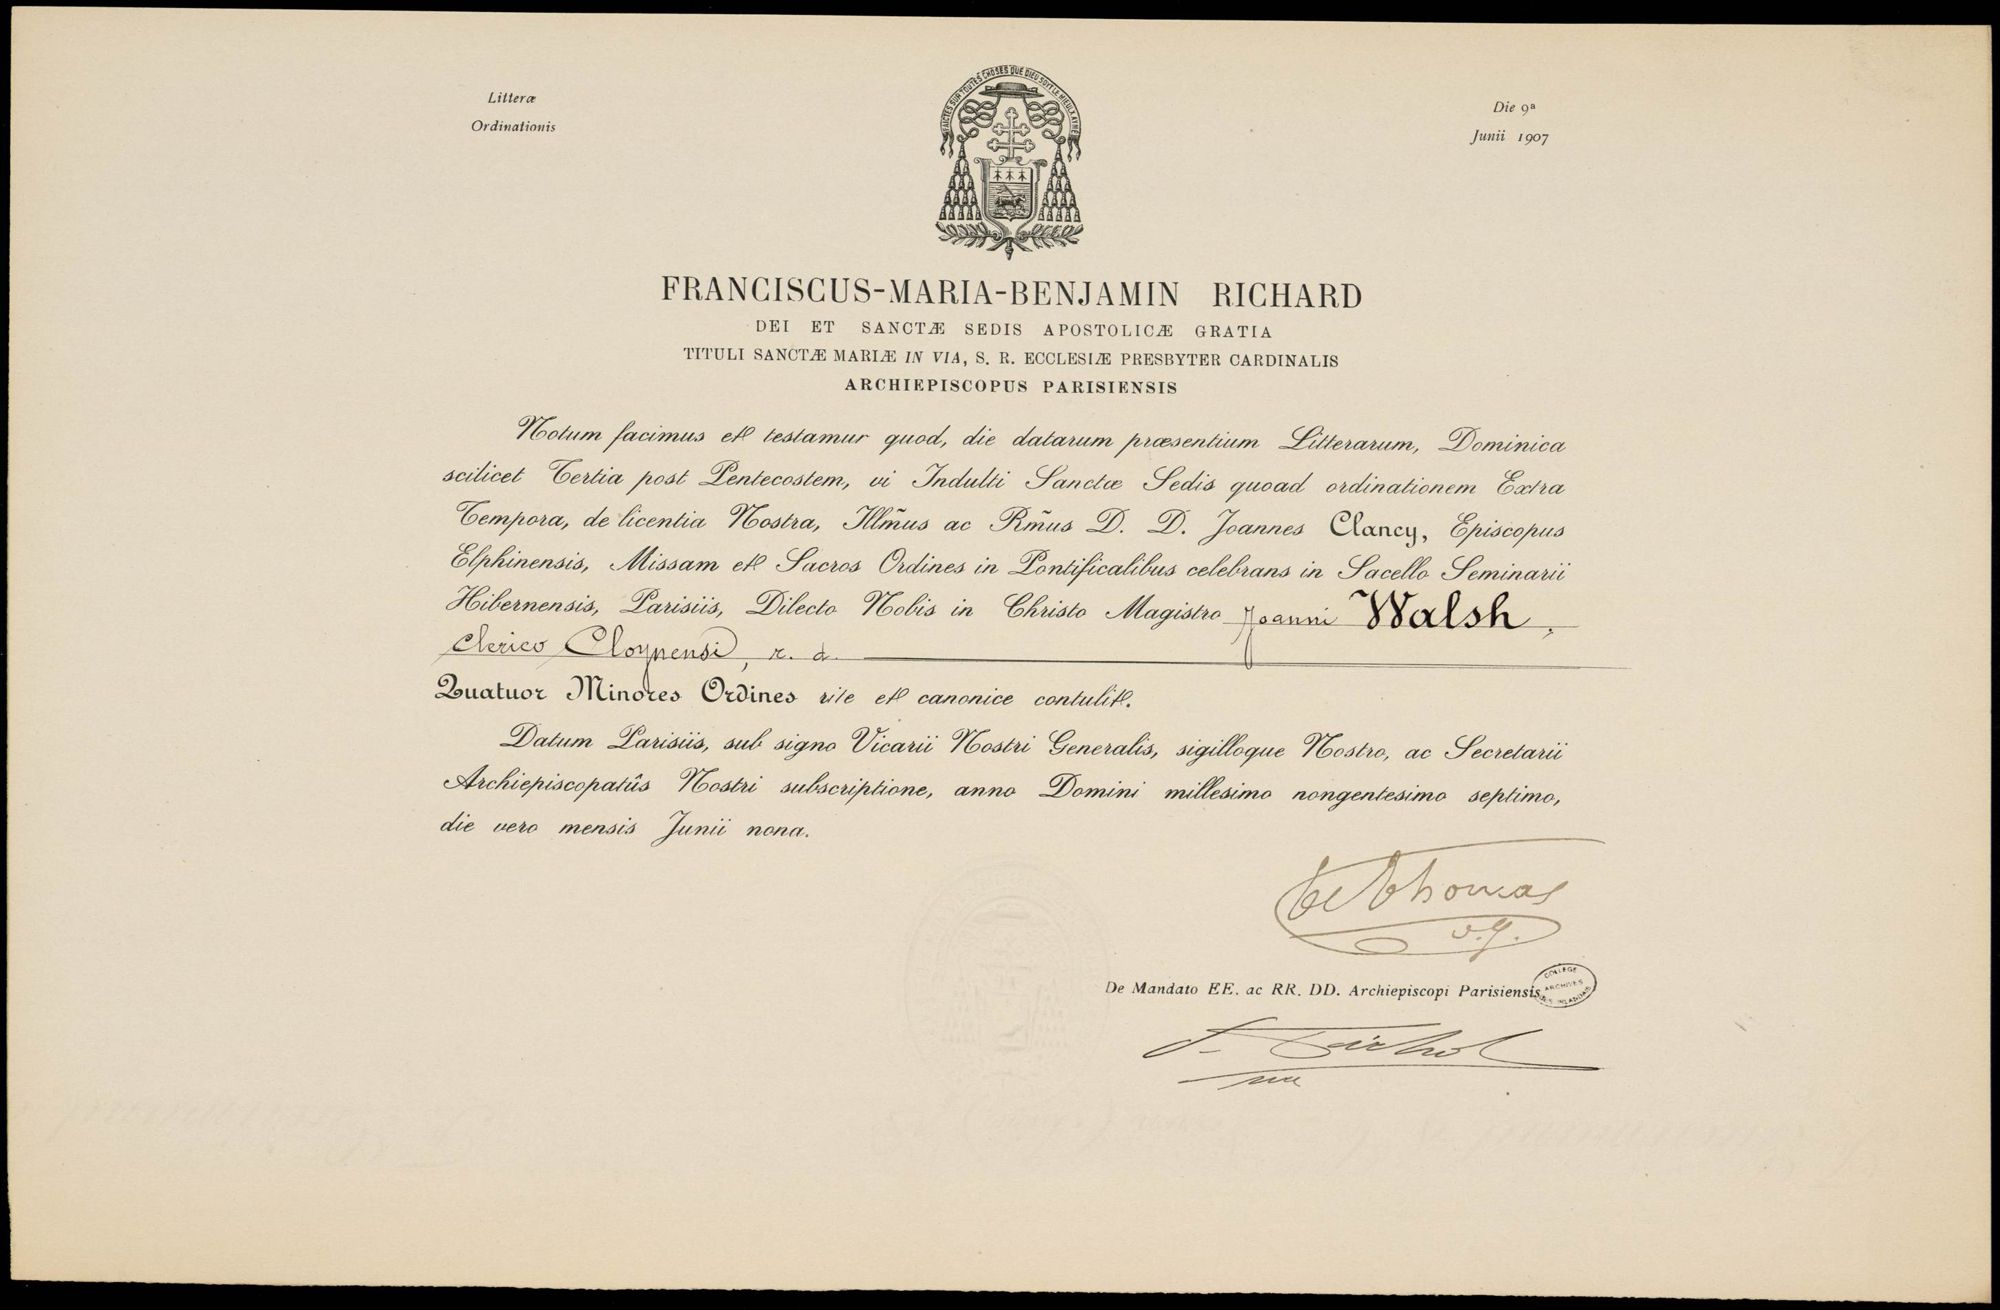 Litteræ
Ordinationis
Die 9ª
Junii 1907
FAICTES SUR TOUTES CHOSES QUE DIEU SOYT LE MIEULX AYMÉ
FRANCISCUS-MARIA-BENJAMIN RICHARD
DEI ET SANCTÆ SEDIS APOSTOLICÆ GRATIA
TITULI SANCTÆ MARIÆ IN VIA, S. R. ECCLESIÆ PRESBYTER CARDINALIS
ARCHIEPISCOPUS PARISIENSIS
Notum facimus et testamur quod, die datarum præsentium Litterarum, Dominica
scilicet Tertia post Pentecostem, vi Indulti Sanctæ Sedis quoad ordinationem Extra
Tempora, de licentia Nostra, Illm̃us ac Rm̃us D. D. Joannes Clancy, Episcopus
Elphinensis, Missam et Sacros Ordines in Pontificalibus celebrans in Sacello Seminarii
Hibernensis, Parisiis, Dilecto Nobis in Christo Magistro Joanni Walsh,
clerico Cloynensi, r. d.
Quatuor Minores Ordines rite et canonice contulit.
Datum Parisiis, sub signo Vicarii Nostri Generalis, sigilloque Nostro, ac Secretarii
Archiepiscopatûs Nostri subscriptione, anno Domini millesimo nongentesimo septimo,
die vero mensis Junii nona.
Thomas
v.g.
De Mandato EE. ac RR. DD. Archiepiscopi Parisiensis
COLLEGE
ARCHIVES
DES IRLANDAIS